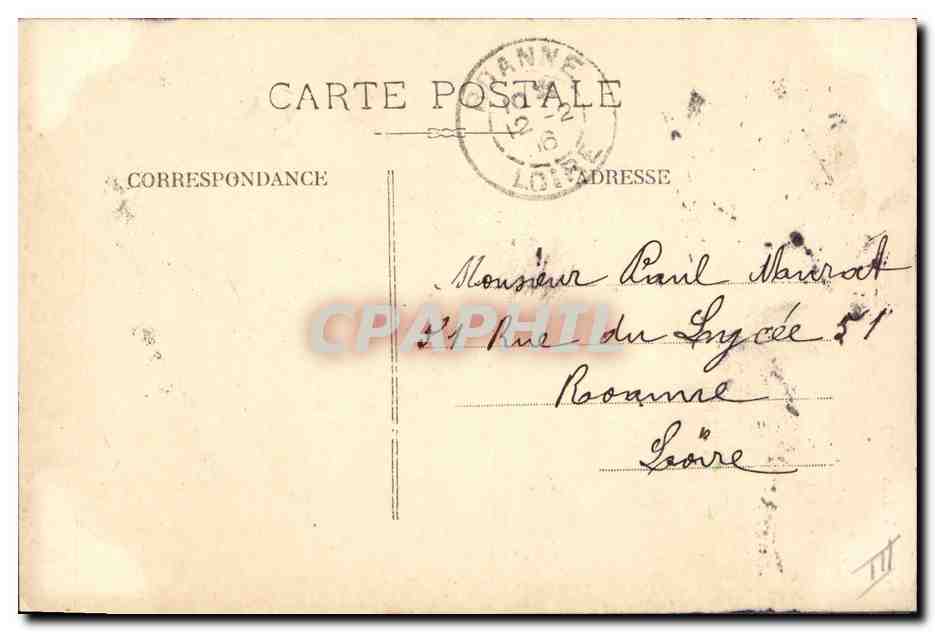 CARTE POSTALE
ROANNE
12-2
16
LOIRE
CORRESPONDANCE
ADRESSE
Monsieur Paul Maurat
51 Rue du Lycée 51
Roanne
Loire
CPAPHIL
III